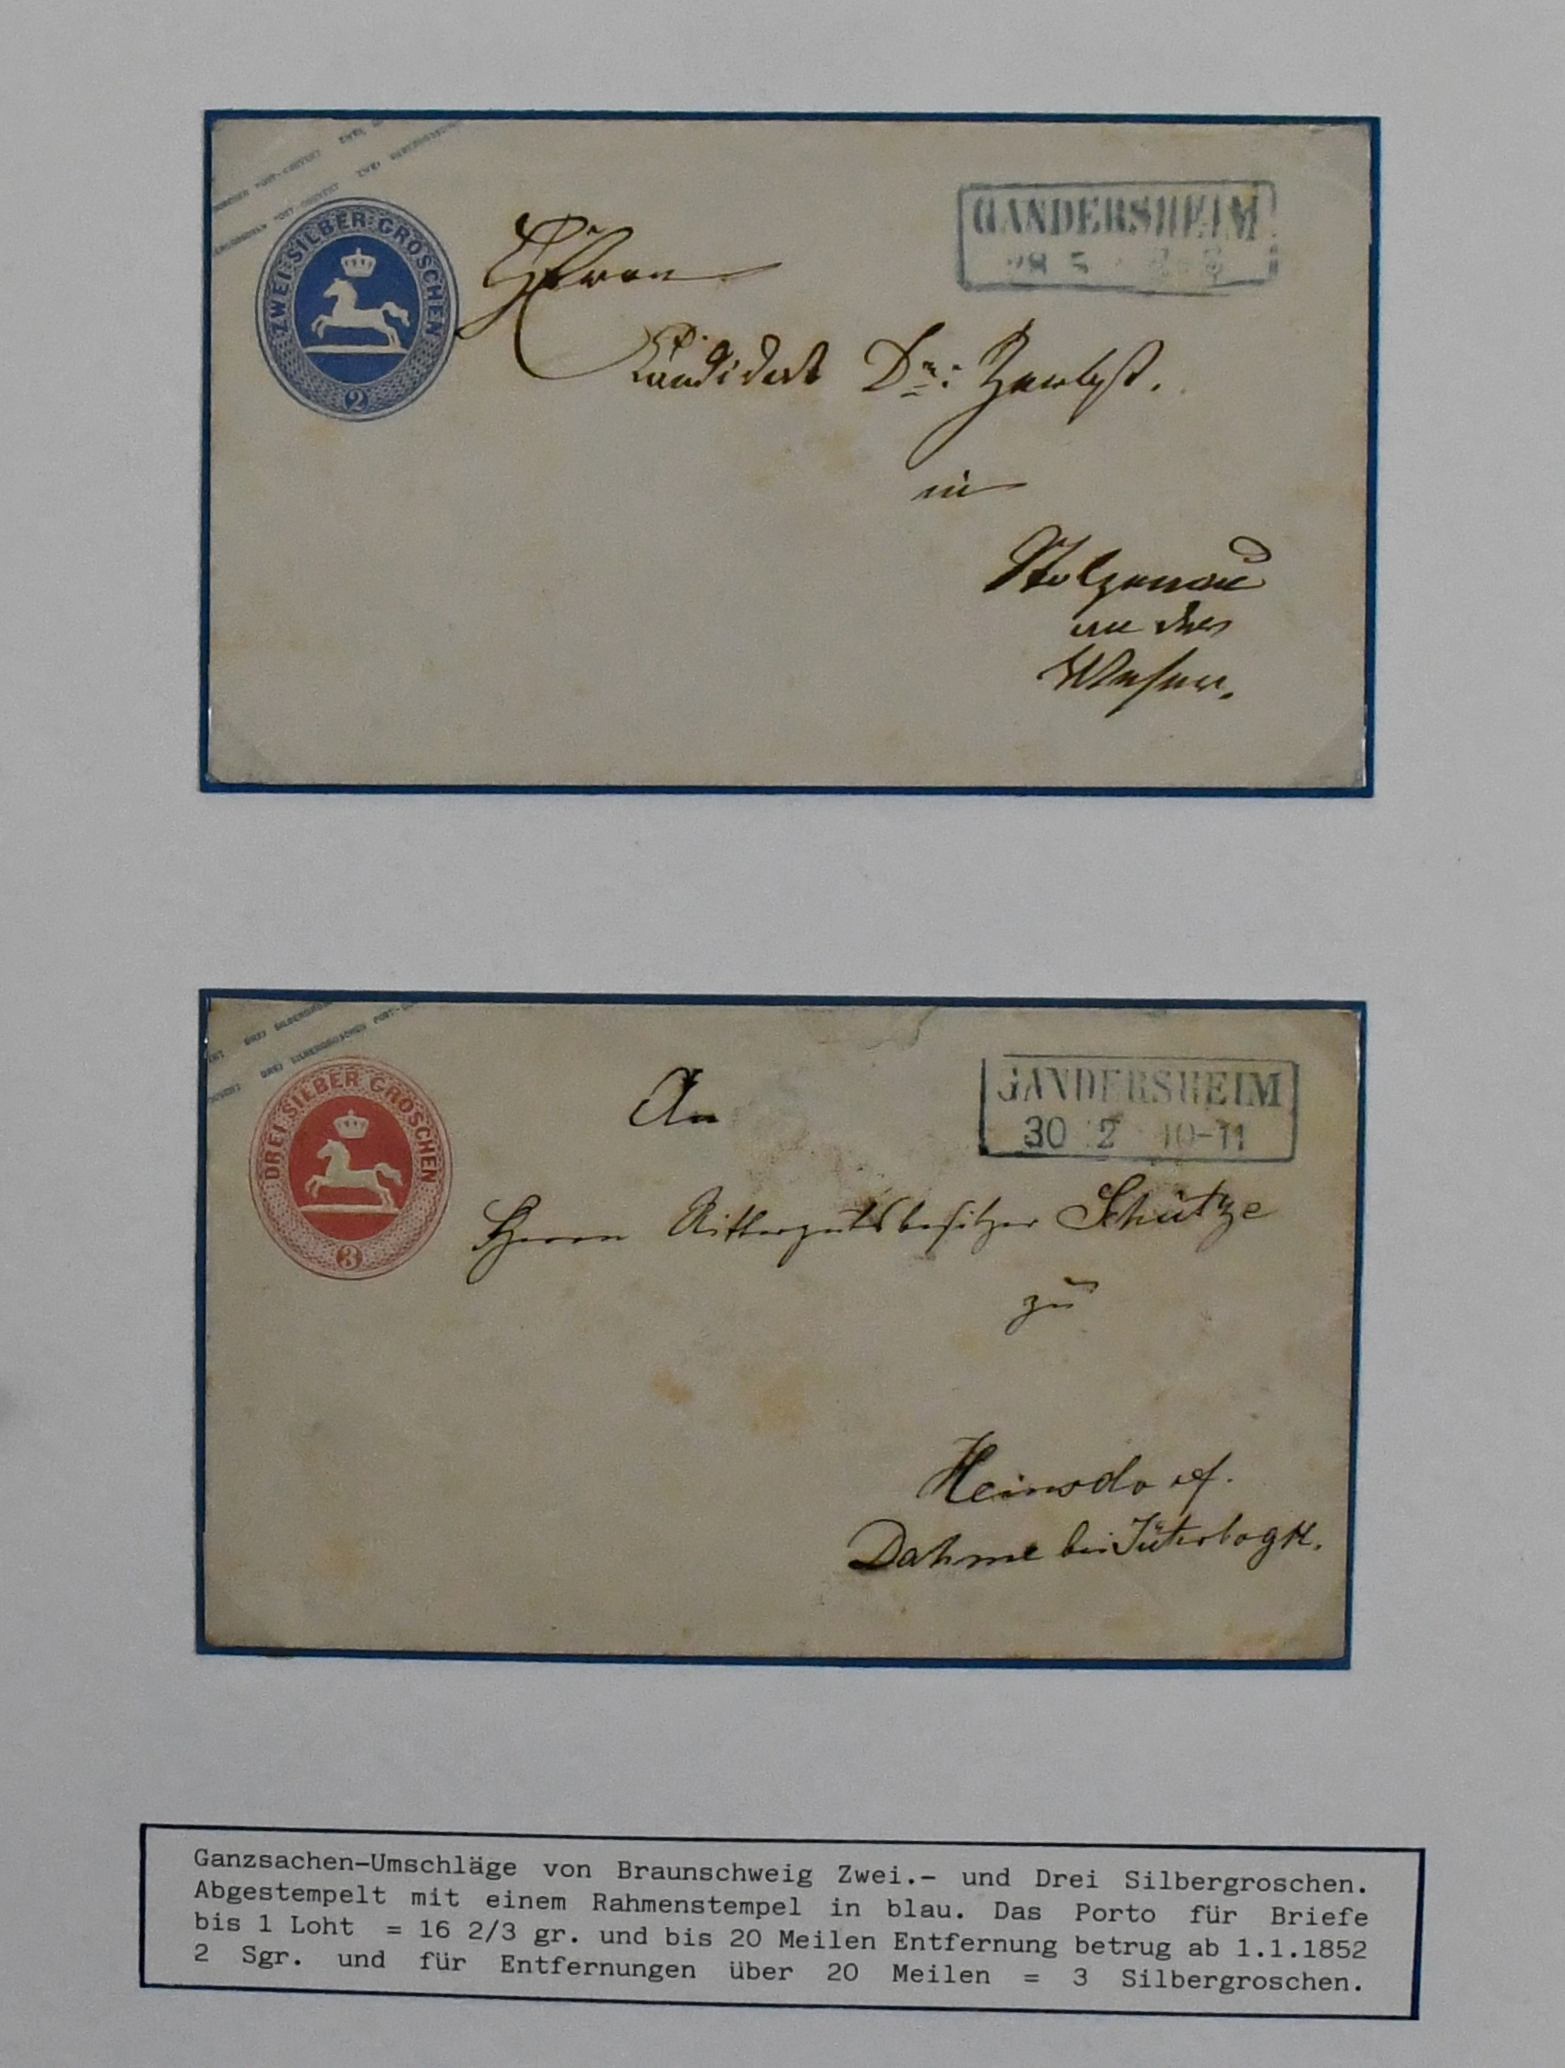 ZWEI SILBER GROSCHEN
2
GANDERSHEIM
28 5
Herrn
Candidat Dr: Zerbst.
in
Stolzenau
an der
Weser.
DREI SILBERGROSCHEN POST-
DREI SILBER GROSCHEN
3
GANDERSHEIM
30 2 10-11
An
Herrn Rittergutsbesitzer Schütze
zu
Heinsdorf.
Dahme bei Jüterbogk.
Ganzsachen-Umschläge von Braunschweig Zwei.- und Drei Silbergroschen.
Abgestempelt mit einem Rahmenstempel in blau. Das Porto für Briefe
bis 1 Loht = 16 2/3 gr. und bis 20 Meilen Entfernung betrug ab 1.1.1852
2 Sgr. und für Entfernungen über 20 Meilen = 3 Silbergroschen.